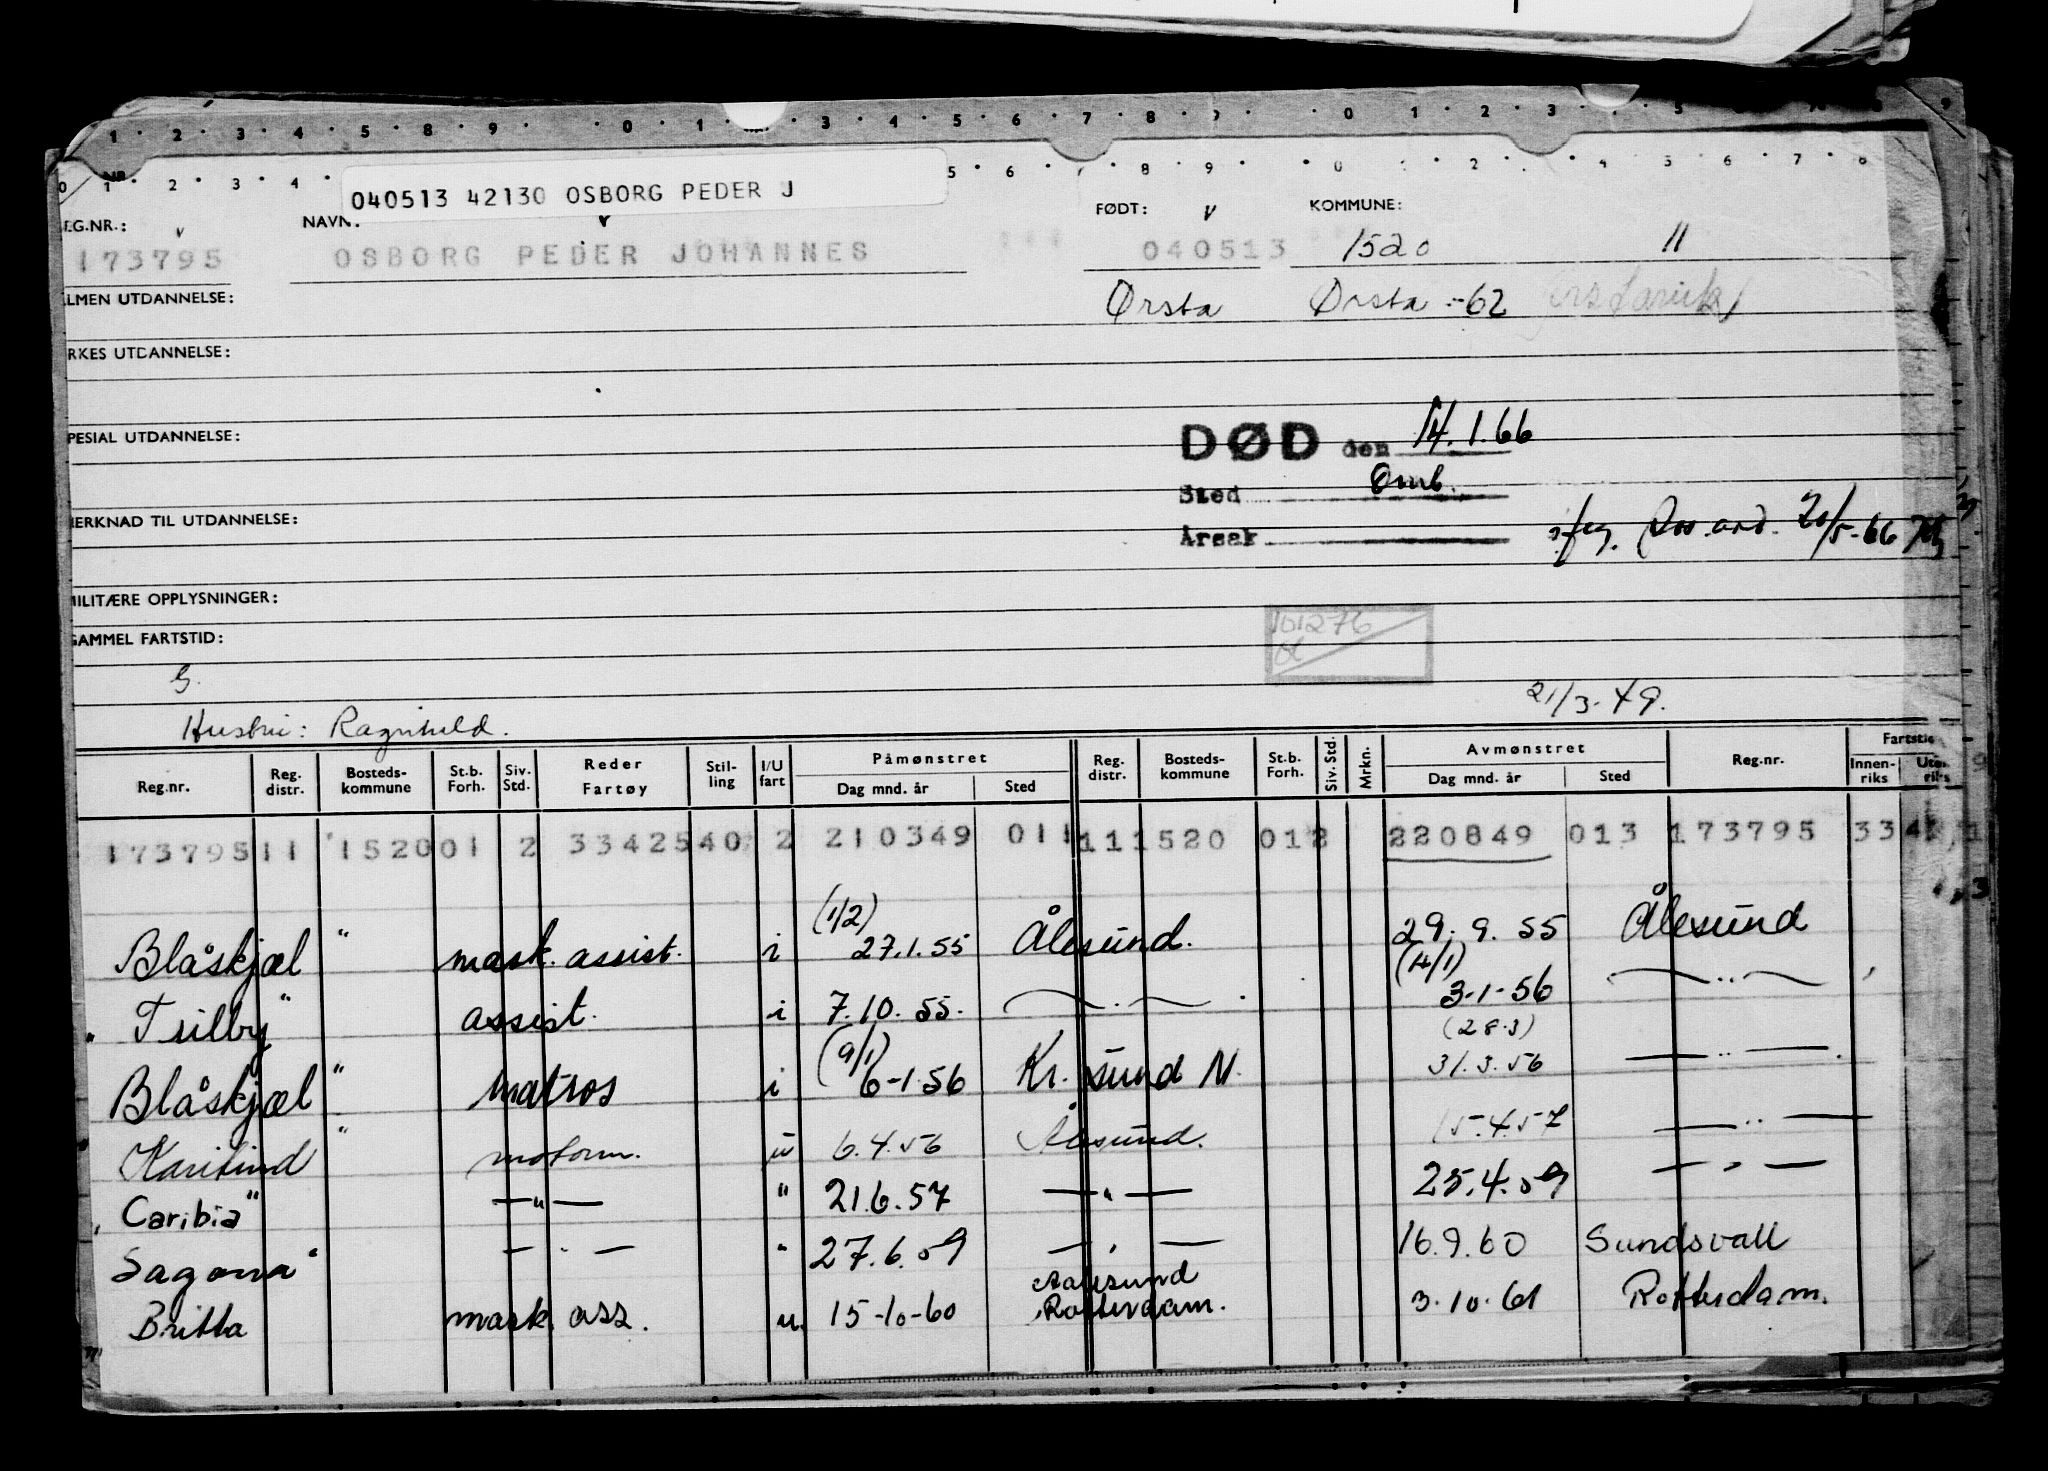 1 2 3 4 5 8 9 0 1 3 4 5 6 7 8 9 0 1 2 3 5 7 8 9
0 1 2 3 4 5 6 8 9 0 2 4 5 6 7 8
040513 42130 OSBORG PEDER J
EG.NR.: v NAVN. v FØDT: v KOMMUNE:
173795 OSBORG PEDER JOHANNES 040513 1520 11
LMEN UTDANNELSE: Ørsta Ørsta -62
RKES UTDANNELSE:
PESIAL UTDANNELSE: DØD den 14.1.66
Sted Omb.
MERKNAD TIL UTDANNELSE: Årsak iføg. 20/5-66
MILITÆRE OPPLYSNINGER:
GAMMEL FARTSTID: 101276
G.
Hustru: Ragnhild. 21/3-49.
Reg.nr. Reg. distr. Bosteds-kommune St.b. Forh. Siv. Std. Reder Fartøy Stil-ling I/U fart Påmønstret Dag mnd. år Sted Reg. distr. Bosteds-kommune St.b. Forh. Siv. Std. Mrkn. Avmønstret Dag mnd. år Sted Reg.nr. Fartstid Innen-riks Uten-riks
173795 11 1520 01 2 33425 40 2 210349 011 11 1520 01 2 220849 013 173795 33
Blåskjæl " mask. assist. i (1/2) 27.1.55 Ålesund. 29.9.55 Ålesund
" Trilby " assist. i 7.10.55. — " — (4/1) 3-1-56 — " —
Blåskjæl " matros i (9/1) 6-1-56 Kr. sund N. (28.3) 31.3.56 — " —
" Karitind " motorm. u 6.4.56 Ålesund. 15.4.57 — " —
" Caribia " — " — " 21.6.57 — " — 25.4.59 — " —
Sagona " — " — " 27.6.59 — " — 16.9.60 Sundsvall
" Britta mask. ass. u. 15-10-60 Aalesund Rotterdam. 3.10.61 Rotterdam.